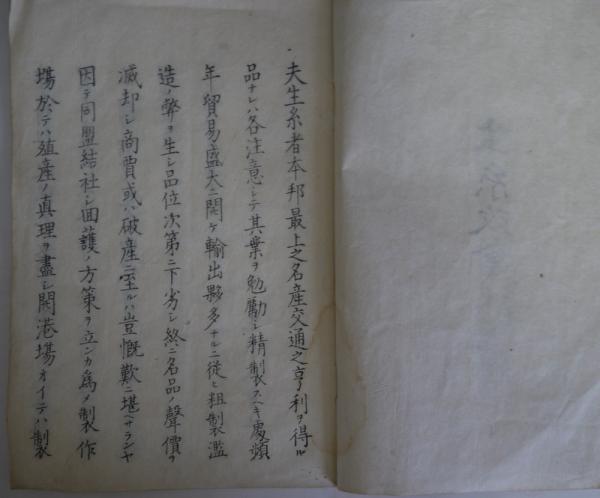 夫生糸者本邦最上之名産交通之亨利ヲ得ル
品ナレハ各注意シテ其業ヲ勉勵シ精製スヘキ處頻
年貿易盛大ニ開ケ輸出夥多ナルニ從ヒ粗製濫
造ノ弊ヲ生シ品位次第ニ下劣シ終ニ名品ノ聲價ヲ
滅却シ商賈或ハ破産ニ至ルハ豈慨歎ニ堪ヘサランヤ
因テ同盟結社シ回護ノ方策ヲ立ンカ為メ製作
場於テハ殖産ノ真理ヲ盡シ開港場オイテハ製